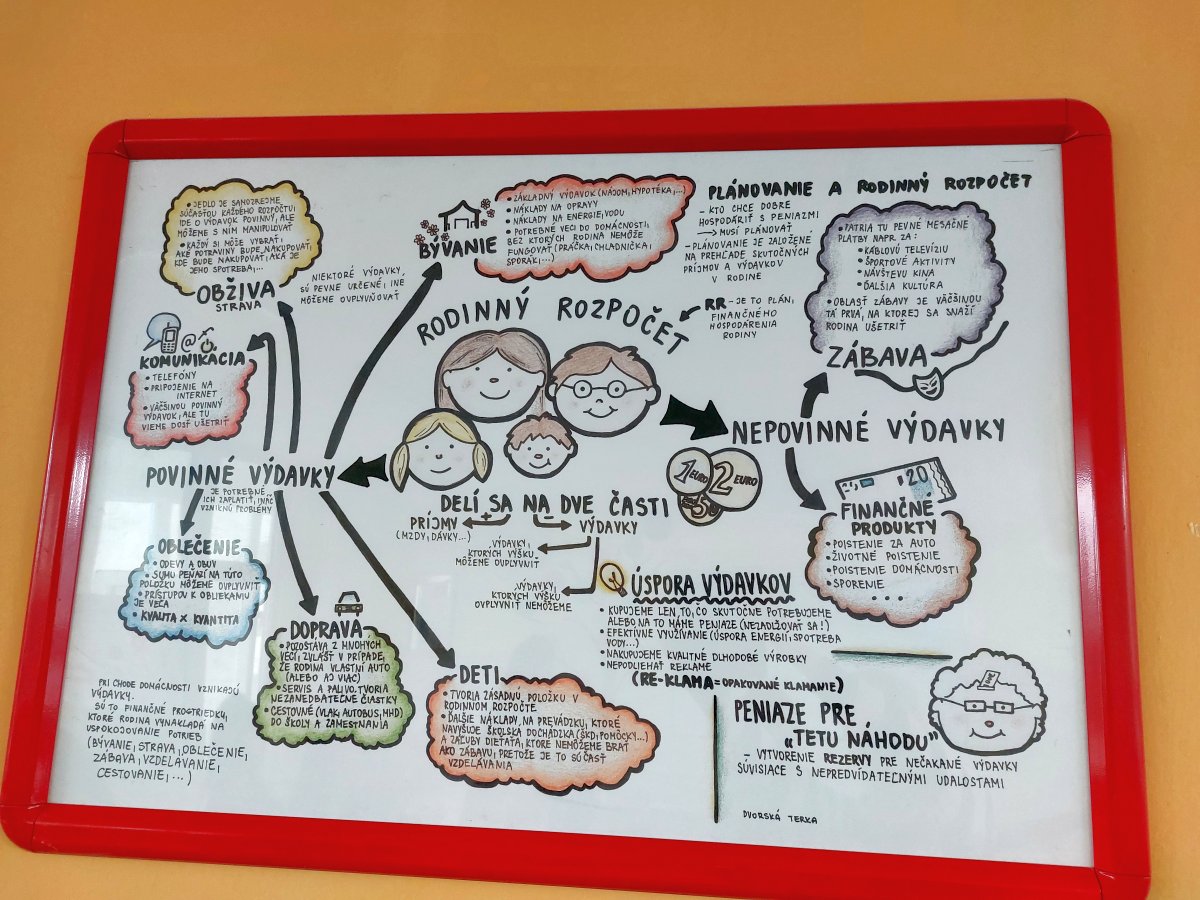 • JEDLO JE SAMOZREJME
SÚČASŤOU KAŽDÉHO ROZPOČTU;
IDE O VÝDAVOK POVINNÝ, ALE
MÔŽEME S NÍM MANIPULOVAŤ
• KAŽDÝ SI MÔŽE VYBRAŤ,
AKÉ POTRAVINY BUDE NAKUPOVAŤ,
KDE BUDE NAKUPOVAŤ, AKÁ JE
JEHO SPOTREBA,...
OBŽIVA
STRAVA
NIEKTORÉ VÝDAVKY,
SÚ PEVNE URČENÉ, INÉ
MÔŽEME OVPLYVŇOVAŤ
BÝVANIE
• ZÁKLADNÝ VÝDAVOK (NÁJOM, HYPOTÉKA,...)
• NÁKLADY NA OPRAVY
• NÁKLADY NA ENERGIE, VODU
• POTREBNÉ VECI DO DOMÁCNOSTI,
BEZ KTORÝCH RODINA NEMÔŽE
FUNGOVAŤ (PRÁČKA, CHLADNIČKA,
SPORÁK,...)
PLÁNOVANIE A RODINNÝ ROZPOČET
- KTO CHCE DOBRE
HOSPODÁRIŤ S PENIAZMI
→ MUSÍ PLÁNOVAŤ
- PLÁNOVANIE JE ZALOŽENÉ
NA PREHĽADE SKUTOČNÝCH
PRÍJMOV A VÝDAVKOV
V RODINE
• PATRIA TU PEVNÉ MESAČNÉ
PLATBY NAPR. ZA:
• KÁBLOVÚ TELEVÍZIU
• ŠPORTOVÉ AKTIVITY
• NÁVŠTEVU KINA
• ĎALŠIA KULTÚRA
• OBLASŤ ZÁBAVY JE VÄČŠINOU
TÁ PRVÁ, NA KTOREJ SA SNAŽÍ
RODINA UŠETRIŤ
ZÁBAVA
RODINNÝ ROZPOČET
RR - JE TO PLÁN,
FINANČNÉHO
HOSPODÁRENIA
RODINY
@
KOMUNIKÁCIA
• TELEFÓNY
• PRIPOJENIE NA
INTERNET
• VÄČŠINOU POVINNÝ
VÝDAVOK, ALE TU
VIEME DOSŤ UŠETRIŤ
NEPOVINNÉ VÝDAVKY
POVINNÉ VÝDAVKY
JE POTREBNÉ
ICH ZAPLATIŤ, INÁČ
VZNIKNÚ PROBLÉMY
1 EURO
2 EURO
5
20
FINANČNÉ
PRODUKTY
• POISTENIE ZA AUTO
• ŽIVOTNÉ POISTENIE
• POISTENIE DOMÁCNOSTI
• SPORENIE
...
DELÍ SA NA DVE ČASTI
PRÍJMY
(MZDY, DÁVKY...)
+
-
VÝDAVKY
VÝDAVKY,
KTORÝCH VÝŠKU
MÔŽEME OVPLYVNIŤ
VÝDAVKY,
KTORÝCH VÝŠKU
OVPLYVNIŤ NEMÔŽEME
OBLEČENIE
• ODEVY A OBUV
• SUMU PEŇAZÍ NA TÚTO
POLOŽKU MÔŽEME OVPLYVNIŤ
• PRÍSTUPOV K OBLIEKANIU
JE VEĽA
• KVALITA X KVANTITA
ÚSPORA VÝDAVKOV
• KUPUJEME LEN TO, ČO SKUTOČNE POTREBUJEME
ALEBO NA TO MÁME PENIAZE (NEZADLŽOVAŤ SA!)
• EFEKTÍVNE VYUŽÍVANIE (ÚSPORA ENERGIÍ, SPOTREBA
VODY...)
• NAKUPUJEME KVALITNÉ DLHODOBÉ VÝROBKY
• NEPODLIEHAŤ REKLAME
(RE-KLAMA = OPAKOVANÉ KLAMANIE)
DOPRAVA
• POZOSTÁVA Z MNOHÝCH
VECÍ, ZVLÁŠŤ V PRÍPADE,
ŽE RODINA VLASTNÍ AUTO
(ALEBO AJ VIAC)
• SERVIS A PALIVO TVORIA
NEZANEDBATEĽNÉ ČIASTKY
• CESTOVNÉ (VLAK, AUTOBUS, MHD)
DO ŠKOLY A ZAMESTNANIA
DETI
• TVORIA ZÁSADNÚ POLOŽKU V
RODINNOM ROZPOČTE
• ĎALŠIE NÁKLADY NA PREVÁDZKU, KTORÉ
NAVYŠUJE ŠKOLSKÁ DOCHÁDZKA (ŠKD, POMÔCKY...)
A ZÁĽUBY DIEŤAŤA, KTORÉ NEMÔŽEME BRAŤ
AKO ZÁBAVU, PRETOŽE JE TO SÚČASŤ
VZDELÁVANIA
PRI CHODE DOMÁCNOSTI VZNIKAJÚ
VÝDAVKY.
SÚ TO FINANČNÉ PROSTRIEDKY,
KTORÉ RODINA VYNAKLADÁ NA
USPOKOJOVANIE POTRIEB
(BÝVANIE, STRAVA, OBLEČENIE,
ZÁBAVA, VZDELÁVANIE,
CESTOVANIE,...)
PENIAZE PRE
„TETU NÁHODU"
- VYTVORENIE REZERVY PRE NEČAKANÉ VÝDAVKY
SÚVISIACE S NEPREDVÍDATEĽNÝMI UDALOSTAMI
DVORSKÁ TERKA